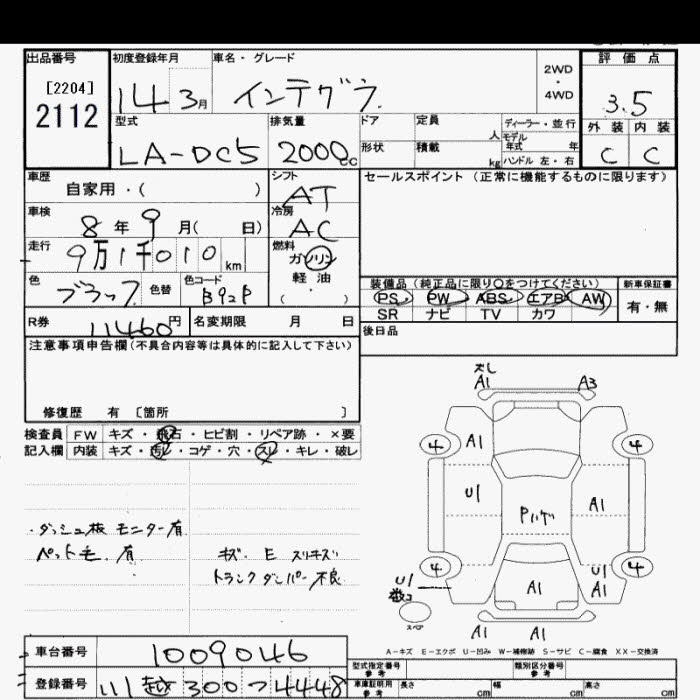 出品番号
[2204]
2112
初度登録年月
14 3月
車名・グレード
インテグラ
2WD
・
4WD
評価点
3.5
外装 内装
C C
型式
LA-DC5
排気量
2000cc
ドア
定員
人
ディーラー・並行
モデル
年式 年
形状
積載
kg
ハンドル 左・右
車歴
自家用・( )
シフト
AT
セールスポイント (正常に機能するものに限ります)
車検
8年9月( 日)
冷房
AC
走行
9万1千010km
燃料
ガソリン
軽油
( ・ )
色
ブラック
色替
色コード
B92P
装備品 (純正品に限り○をつけてください)
PS PW ABS エアB AW
SR ナビ TV カワ
新車保証書
有・無
R券
11460円
名変期限 月 日
後日品
注意事項申告欄(不具合内容等は具体的に記入して下さい)
修復歴 有 〔箇所 〕
検査員
記入欄
FW キズ・飛石・ヒビ割・リペア跡・×要
内装 キズ・汚レ・コゲ・穴・スレ・キレ・破レ
・ダッシュ板 モニター有
ペット毛 有
キズ・E スリキズ
トランクダンパー不良
A1 A3
4 A1 4
U1 A1
Pハゲ
4 4
U1 A1 U1
A1
スペア
A1 A1
A-キズ E-エクボ U-凹み W-補修跡 S-サビ C-腐食 XX-交換済
車台番号
1009046
登録番号
川越300つ4448
型式指定番号
参考
類別区分番号
参考
車庫証明用
参考
長さ cm 幅 cm 高さ cm